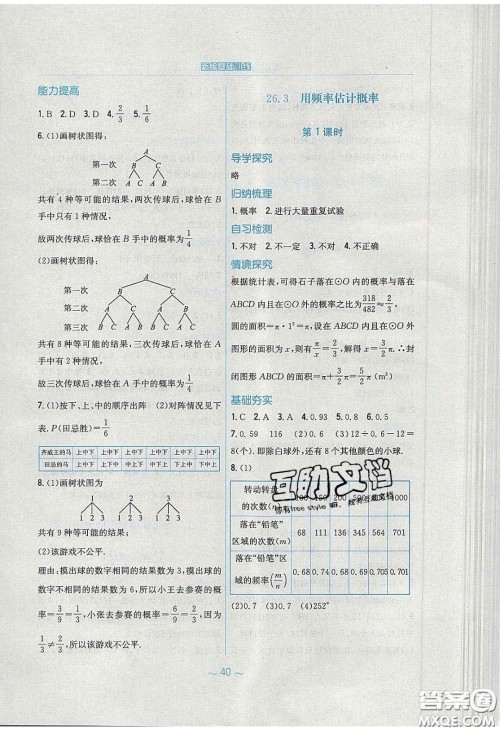 能力提高
1. B  2. D  3. D  4. 2/3  5. 1/6
6. (1)画树状图得:
A
第一次 B C
第二次 A C A B
共有 4 种等可能的结果,两次传球后,球恰在 B
手中只有 1 种情况,
故两次传球后,球恰在 B 手中的概率为 1/4
(2)画树状图得:
A
第一次 B C
第二次 A C A B
第三次 B C A B B C A C
共有 8 种等可能的结果,三次传球后,球恰在 A
手中有 2 种情况,
故三次传球后,球恰在 A 手中的概率为 1/4
7. (1)按下、上、中的顺序出阵  (2)对阵情况见下
表. P(田忌胜)=1/6
齐威王的马 上中下 上中下 上中下 上中下 上中下 上中下
田忌的马
8. (1)画树状图为
1 2 3 1 2 3 1 2 3
共有 9 种等可能的结果;
(2)该游戏不公平.
理由:摸出球的数字相同的结果数为 3,摸出球的
数字不相同的结果数为 6,所以小王去参赛的概
率=3/9=1/3,小张去参赛的概率=6/9=2/3,
因为 1/3≠2/3,所以该游戏不公平.
26.3 用频率估计概率
第 1 课时
导学探究
略
归纳梳理
1. 概率  2. 进行大量重复试验
自习检测
1. 不对  2. 不一定  3. 不对  4. 不正确
情境探究
根据统计表,可得石子落在⊙O 内的概率与落在
ABCD 内且在⊙O 外的概率之比为 318/482≈2/3,
圆的面积=π·1²=π,设在⊙O 外且在 ABCD 内
部分的面积为 x,则有 π/x=2/3,解得 x=3/2π.∴封
闭图形 ABCD 的面积=π+3/2π=5/2π(m²)
基础夯实
1. C  2. A  3. A  4. 0.93  5. 0.8  6. 0.5
8(个).即除白球外,还有 8 个其他颜色的小球.
8. (1)
转动转盘
的次数(n)
落在“铅笔”
区域的次数(m) 68 111 136 345 564 701
落在“铅笔”区
域的频率(m/n)
(2)0.7  (3)0.7  (4)252°
互助文档
~ 40 ~
答案圈
MXQE.COM